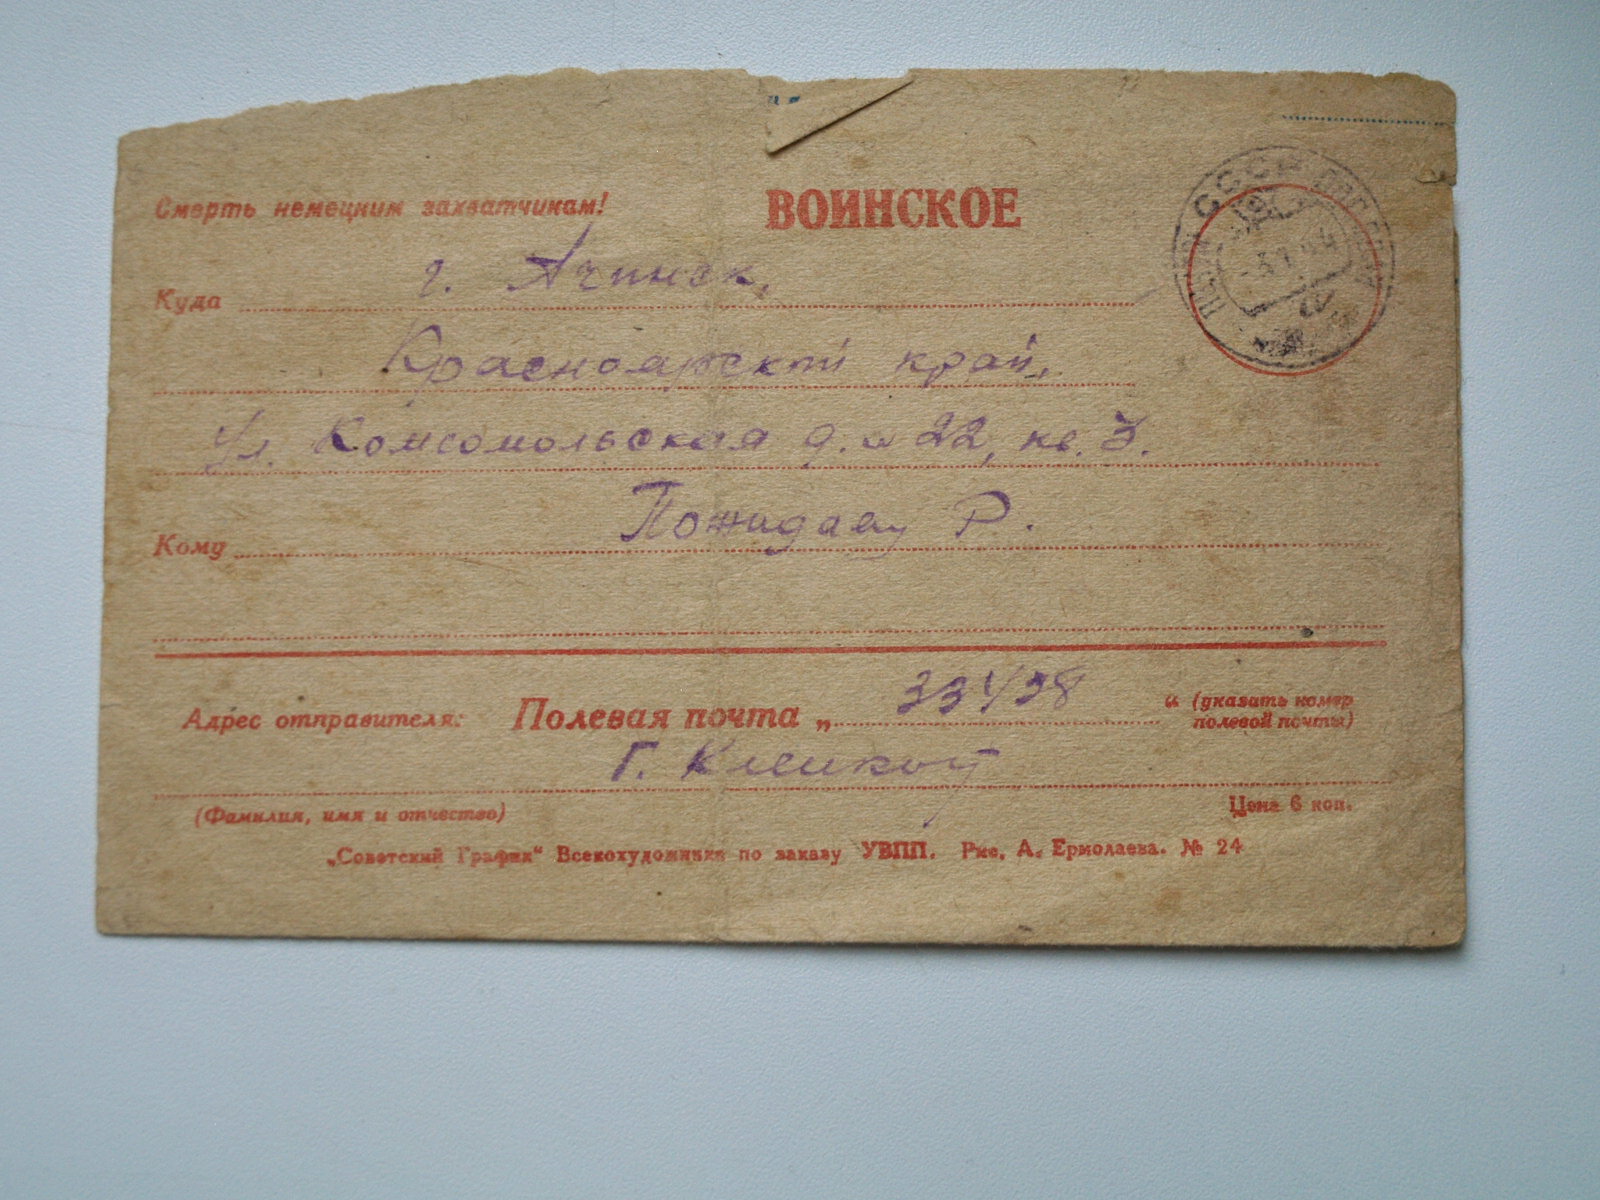 Смерть немецким захватчикам!
ВОИНСКОЕ
СССР
Куда г. Ачинск,
Красноярский край,
ул. Комсомольская д. № 22, кв. 3.
Кому Пожидаеву Р.
Адрес отправителя: Полевая почта „ " (указать номер полевой почты)
Г.
(Фамилия, имя и отчество)
Цена 6 коп.
„Советский График" Всекохудожника по заказу УВПП. Рис. А. Ермолаева. № 24